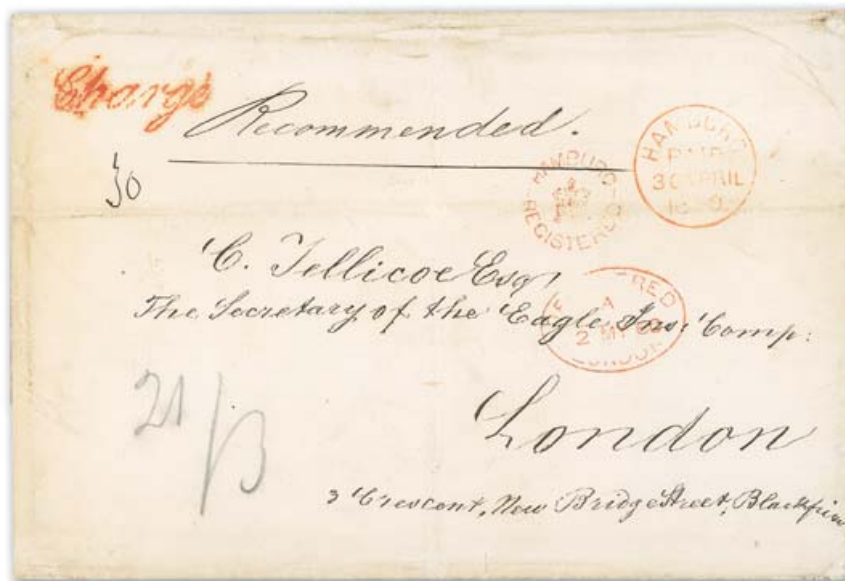 Chargé
Recommended.
HAMBURG
PAID
30 APRIL
HAMBURG
REGISTERED
30
C. Jellicoe Esq
The Secretary of the Eagle Ins: Comp:
A
2 MY
LONDON
London
21/B
3 Crescent, New Bridge Street, Blackfriars